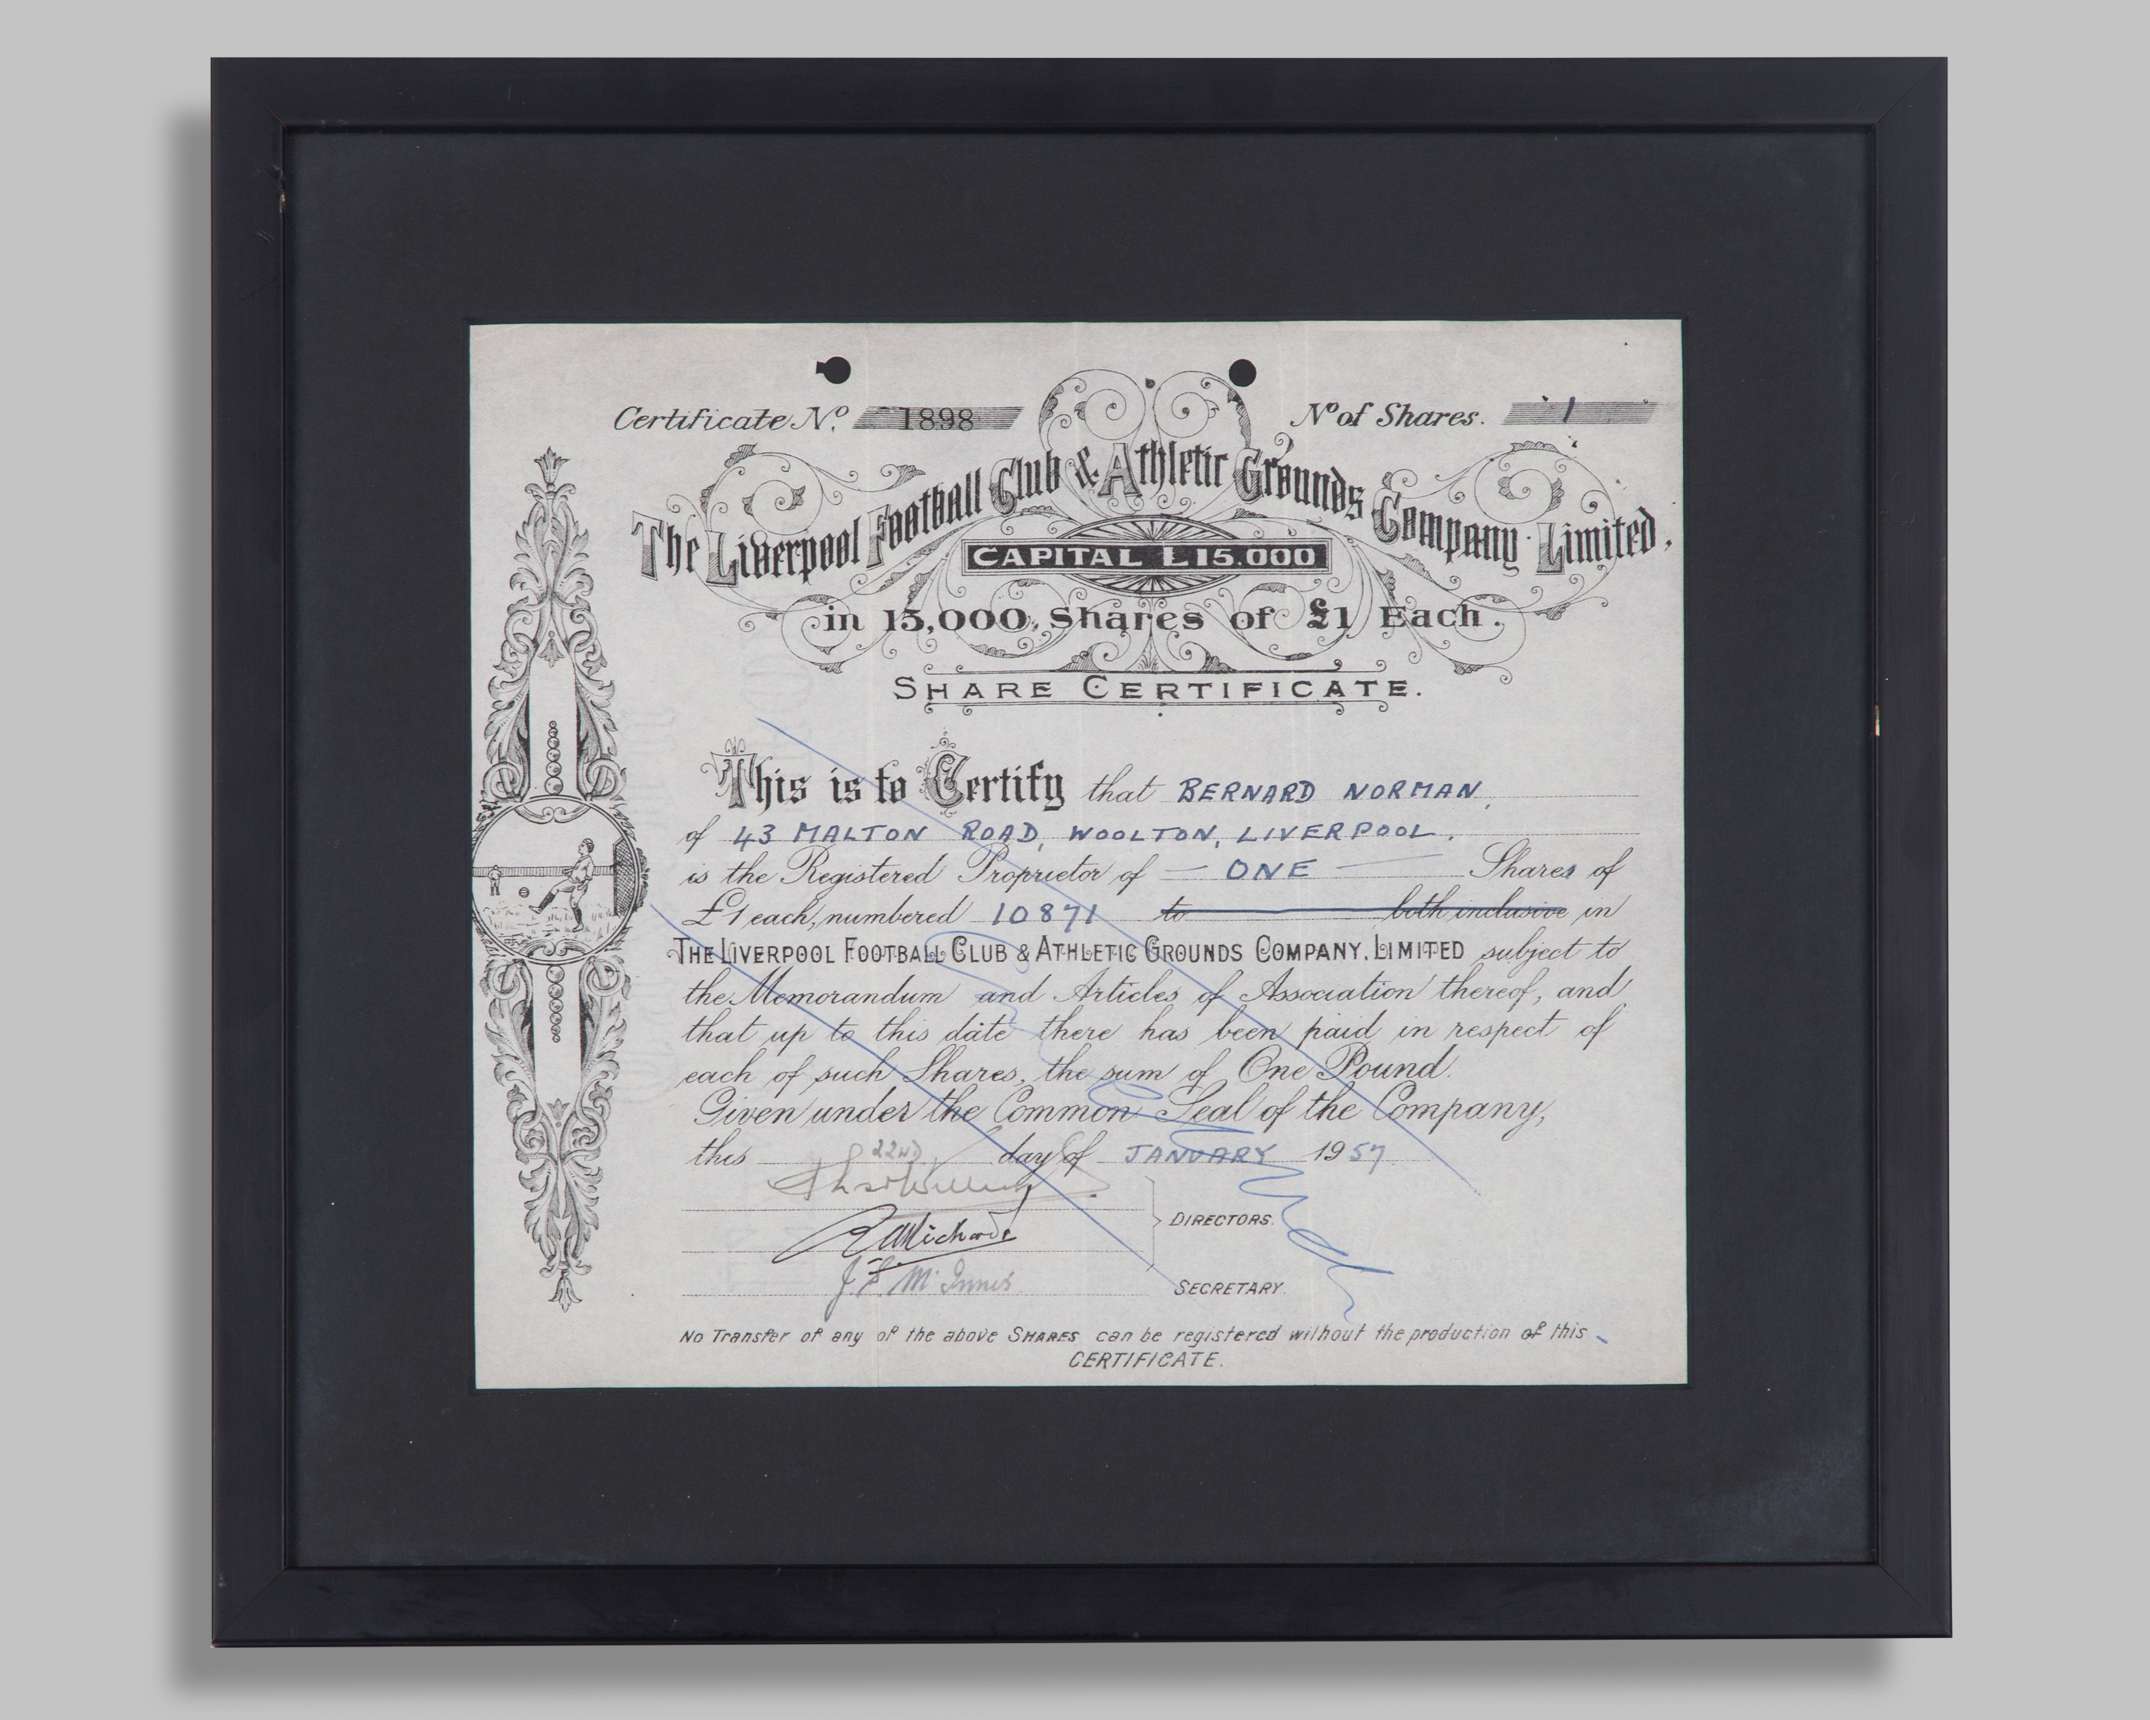 Certificate No. 1898
No of Shares. 1
The Liverpool Football Club & Athletic Grounds Company Limited.
CAPITAL £15.000
in 15,000 Shares of £1 Each.
SHARE CERTIFICATE.
This is to Certify that BERNARD NORMAN,
of 43 MALTON ROAD, WOOLTON, LIVERPOOL.
is the Registered Proprietor of — ONE — Shares of
£1 each, numbered 10871 to both inclusive in
THE LIVERPOOL FOOTBALL CLUB & ATHLETIC GROUNDS COMPANY. LIMITED subject to
the Memorandum and Articles of Association thereof, and
that up to this date there has been paid in respect of
each of such Shares, the sum of One Pound.
Given under the Common Seal of the Company,
this 22ND day of JANUARY 1957
DIRECTORS.
J. S. McInnes
SECRETARY.
No Transfer of any of the above SHARES can be registered without the production of this
CERTIFICATE.